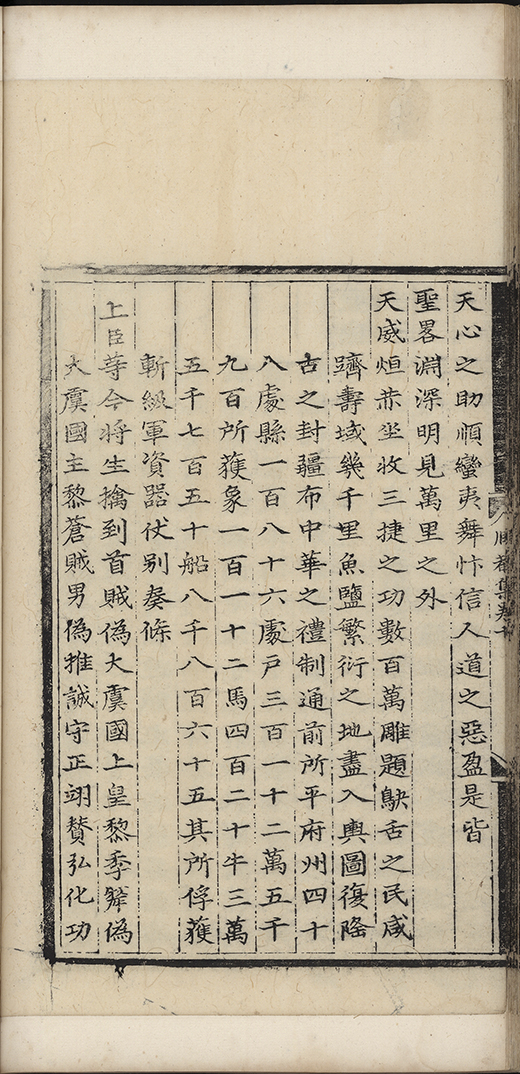 天心之助順蠻夷舞忭信人道之惡盈是皆
聖畧淵深明見萬里之外
天威烜赫坐收三捷之功數百萬雕題鴃舌之民咸
躋壽域幾千里魚鹽繁衍之地盡入輿圖復隆
古之封疆布中華之禮制通前所平府州四十
八處縣一百八十六處戶三百一十二萬五千
九百所獲象一百一十二馬四百二十牛三萬
五千七百五十船八千八百六十五其所俘獲
斬級軍資器仗别奏條
上臣等今將生擒到首賊偽大虞國上皇黎季犛偽
大虞國主黎蒼賊男偽推誠守正翊賛弘化功